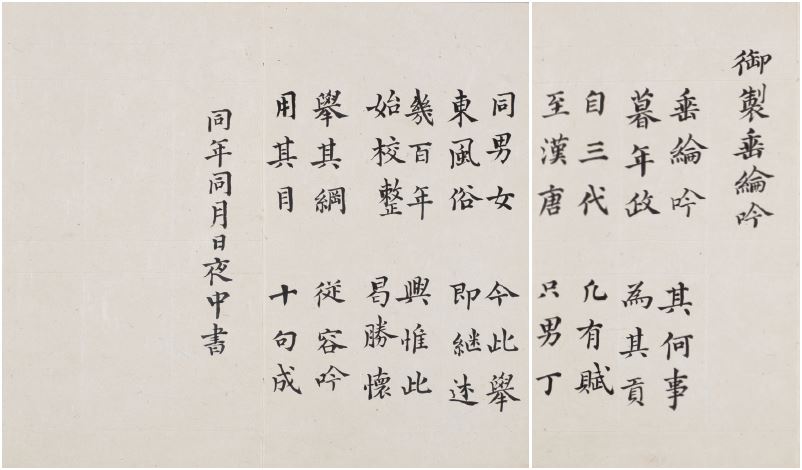 御製垂綸吟
垂綸吟 其何事
暮年政 為其貢
自三代 凡有賦
至漢唐 只男丁
同男女 今此擧
東風俗 即継述
幾百年 興惟此
始校整 曷勝懷
擧其綱 従容吟
用其目 十句成
同年同月日夜中書